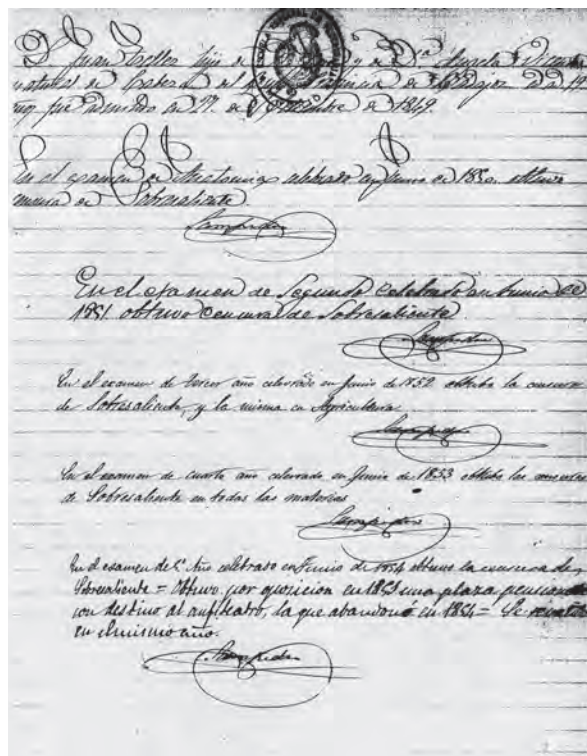 D. Juan Tellez hijo de y de D.ª Angela Vicen
natural de Cabeza del provincia de Badajoz
fue admitido en 27. de Setiembre de 1849.
En el examen de celebrado en Junio de 1850. obtuvo
censura de Sobresaliente
Sampedro
En el examen de Segundo celebrado en Junio de
1851. obtuvo censura de Sobresaliente.
Sampedro
En el examen de tercer año celevrado en Junio de 1852. obtubo la censura
de Sobresaliente, y la misma en Agricultura
Sampedro
En el examen de cuarto año celevrado en Junio de 1853 obtubo las censuras
de Sobresaliente en todas las materias
Sampedro
En el examen de 5º Año celebrado en Junio de 1854 obtuvo la censura de
Sobresaliente = Obtuvo por oposicion en 1853 una plaza pensionada
con destino al anfiteatro, la que abandonó en 1854 = Se
en el mismo año.
Sampedro